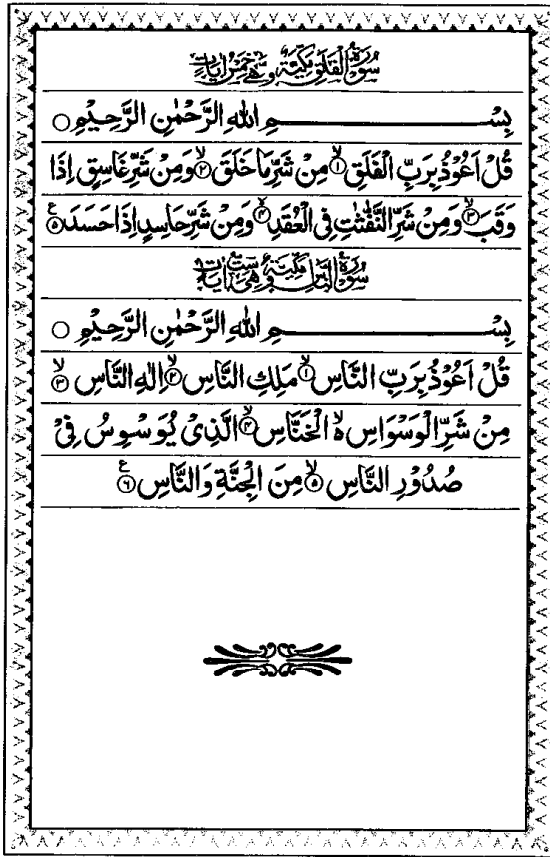 سُوْرَةُ الْفَلَقِ مَكِّيَّةٌ وَّهِيَ خَمْسُ اٰيَاتٍ
بِسْــــــــــــــــــمِ اللهِ الرَّحْمٰنِ الرَّحِيْمِ ○
قُلْ اَعُوْذُ بِرَبِّ الْفَلَقِ ۙ﴿۱﴾ مِنْ شَرِّ مَا خَلَقَ ۙ﴿۲﴾ وَمِنْ شَرِّ غَاسِقٍ اِذَا
وَقَبَ ۙ﴿۳﴾ وَمِنْ شَرِّ النَّفّٰثٰتِ فِی الْعُقَدِ ۙ﴿۴﴾ وَمِنْ شَرِّ حَاسِدٍ اِذَا حَسَدَ ﴿۵﴾ ع
سُوْرَةُ النَّاسِ مَكِّيَّةٌ وَّهِيَ سِتُّ اٰيَاتٍ
بِسْــــــــــــــــــمِ اللهِ الرَّحْمٰنِ الرَّحِيْمِ ○
قُلْ اَعُوْذُ بِرَبِّ النَّاسِ ۙ﴿۱﴾ مَلِكِ النَّاسِ ۙ﴿۲﴾ اِلٰهِ النَّاسِ ۙ﴿۳﴾
مِنْ شَرِّ الْوَسْوَاسِ ۙ۬ الْخَنَّاسِ ۙ﴿۴﴾ الَّذِیْ یُوَسْوِسُ فِیْ
صُدُوْرِ النَّاسِ ۙ﴿۵﴾ مِنَ الْجِنَّةِ وَالنَّاسِ ﴿۶﴾ ع